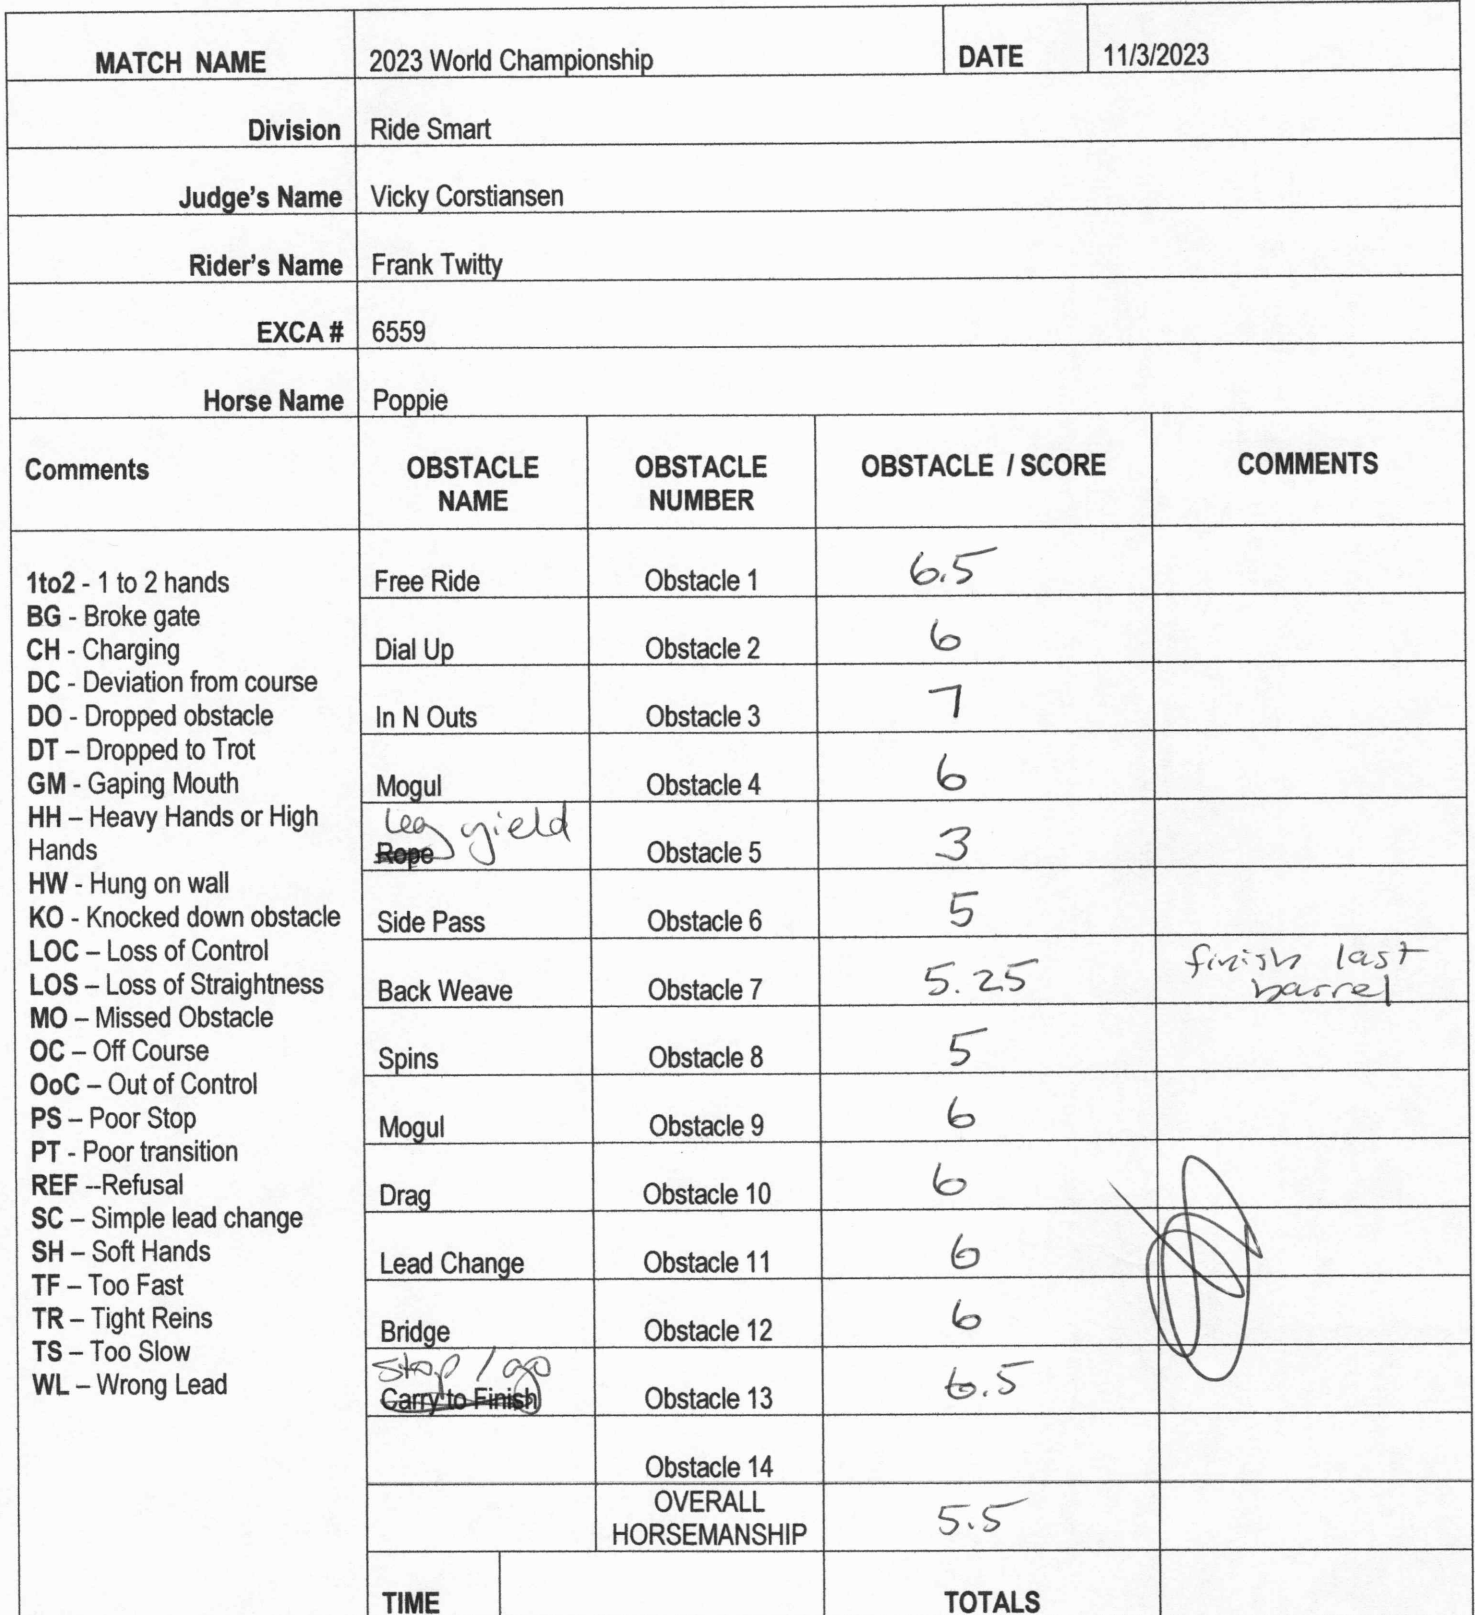 MATCH NAME 2023 World Championship DATE 11/3/2023
Division Ride Smart
Judge's Name Vicky Corstiansen
Rider's Name Frank Twitty
EXCA # 6559
Horse Name Poppie
Comments OBSTACLE NAME OBSTACLE NUMBER OBSTACLE / SCORE COMMENTS
1to2 - 1 to 2 hands
BG - Broke gate
CH - Charging
DC - Deviation from course
DO - Dropped obstacle
DT – Dropped to Trot
GM - Gaping Mouth
HH – Heavy Hands or High
Hands
HW - Hung on wall
KO - Knocked down obstacle
LOC – Loss of Control
LOS – Loss of Straightness
MO – Missed Obstacle
OC – Off Course
OoC – Out of Control
PS – Poor Stop
PT - Poor transition
REF --Refusal
SC – Simple lead change
SH – Soft Hands
TF – Too Fast
TR – Tight Reins
TS – Too Slow
WL – Wrong Lead
Free Ride Obstacle 1 6.5
Dial Up Obstacle 2 6
In N Outs Obstacle 3 7
Mogul Obstacle 4 6
Leg yield
Rope Obstacle 5 3
Side Pass Obstacle 6 5
Back Weave Obstacle 7 5.25 finish last barrel
Spins Obstacle 8 5
Mogul Obstacle 9 6
Drag Obstacle 10 6
Lead Change Obstacle 11 6
Bridge Obstacle 12 6
Stop / go
Carry to Finish Obstacle 13 6.5
Obstacle 14
OVERALL HORSEMANSHIP 5.5
TIME TOTALS